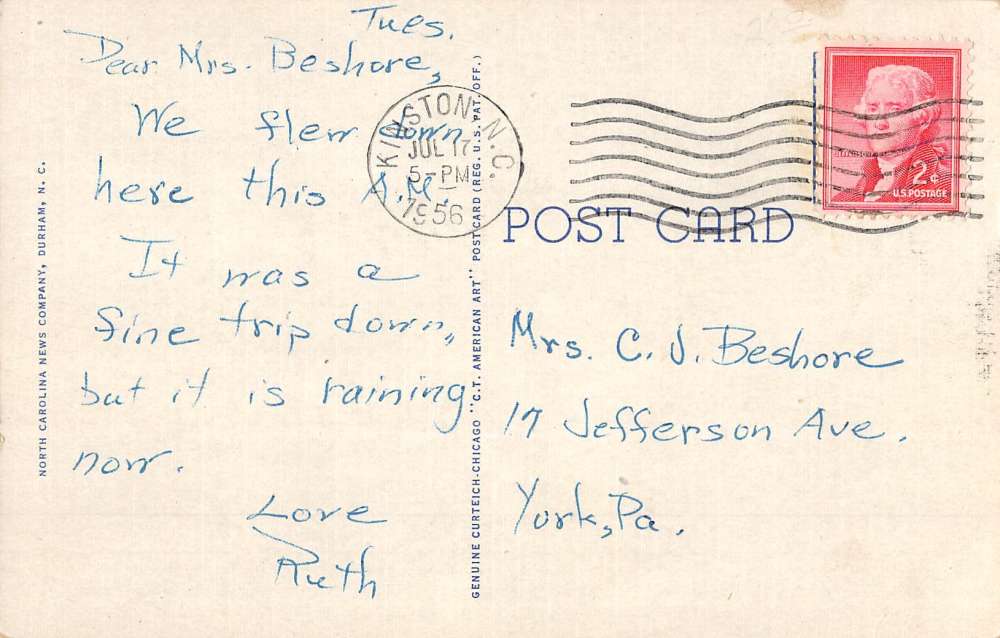 Tues.
Dear Mrs. Beshore,
We flew down
here this A.M.
It was a
fine trip down,
but it is raining
now.
Love
Ruth
KINSTON, N.C.
JUL 17
5-PM
1956
2¢
U.S. POSTAGE
POST CARD
Mrs. C. J. Beshore
17 Jefferson Ave.
York, Pa.
NORTH CAROLINA NEWS COMPANY, DURHAM, N. C.
GENUINE CURTEICH-CHICAGO "C.T. AMERICAN ART" POST CARD (REG. U.S. PAT. OFF.)